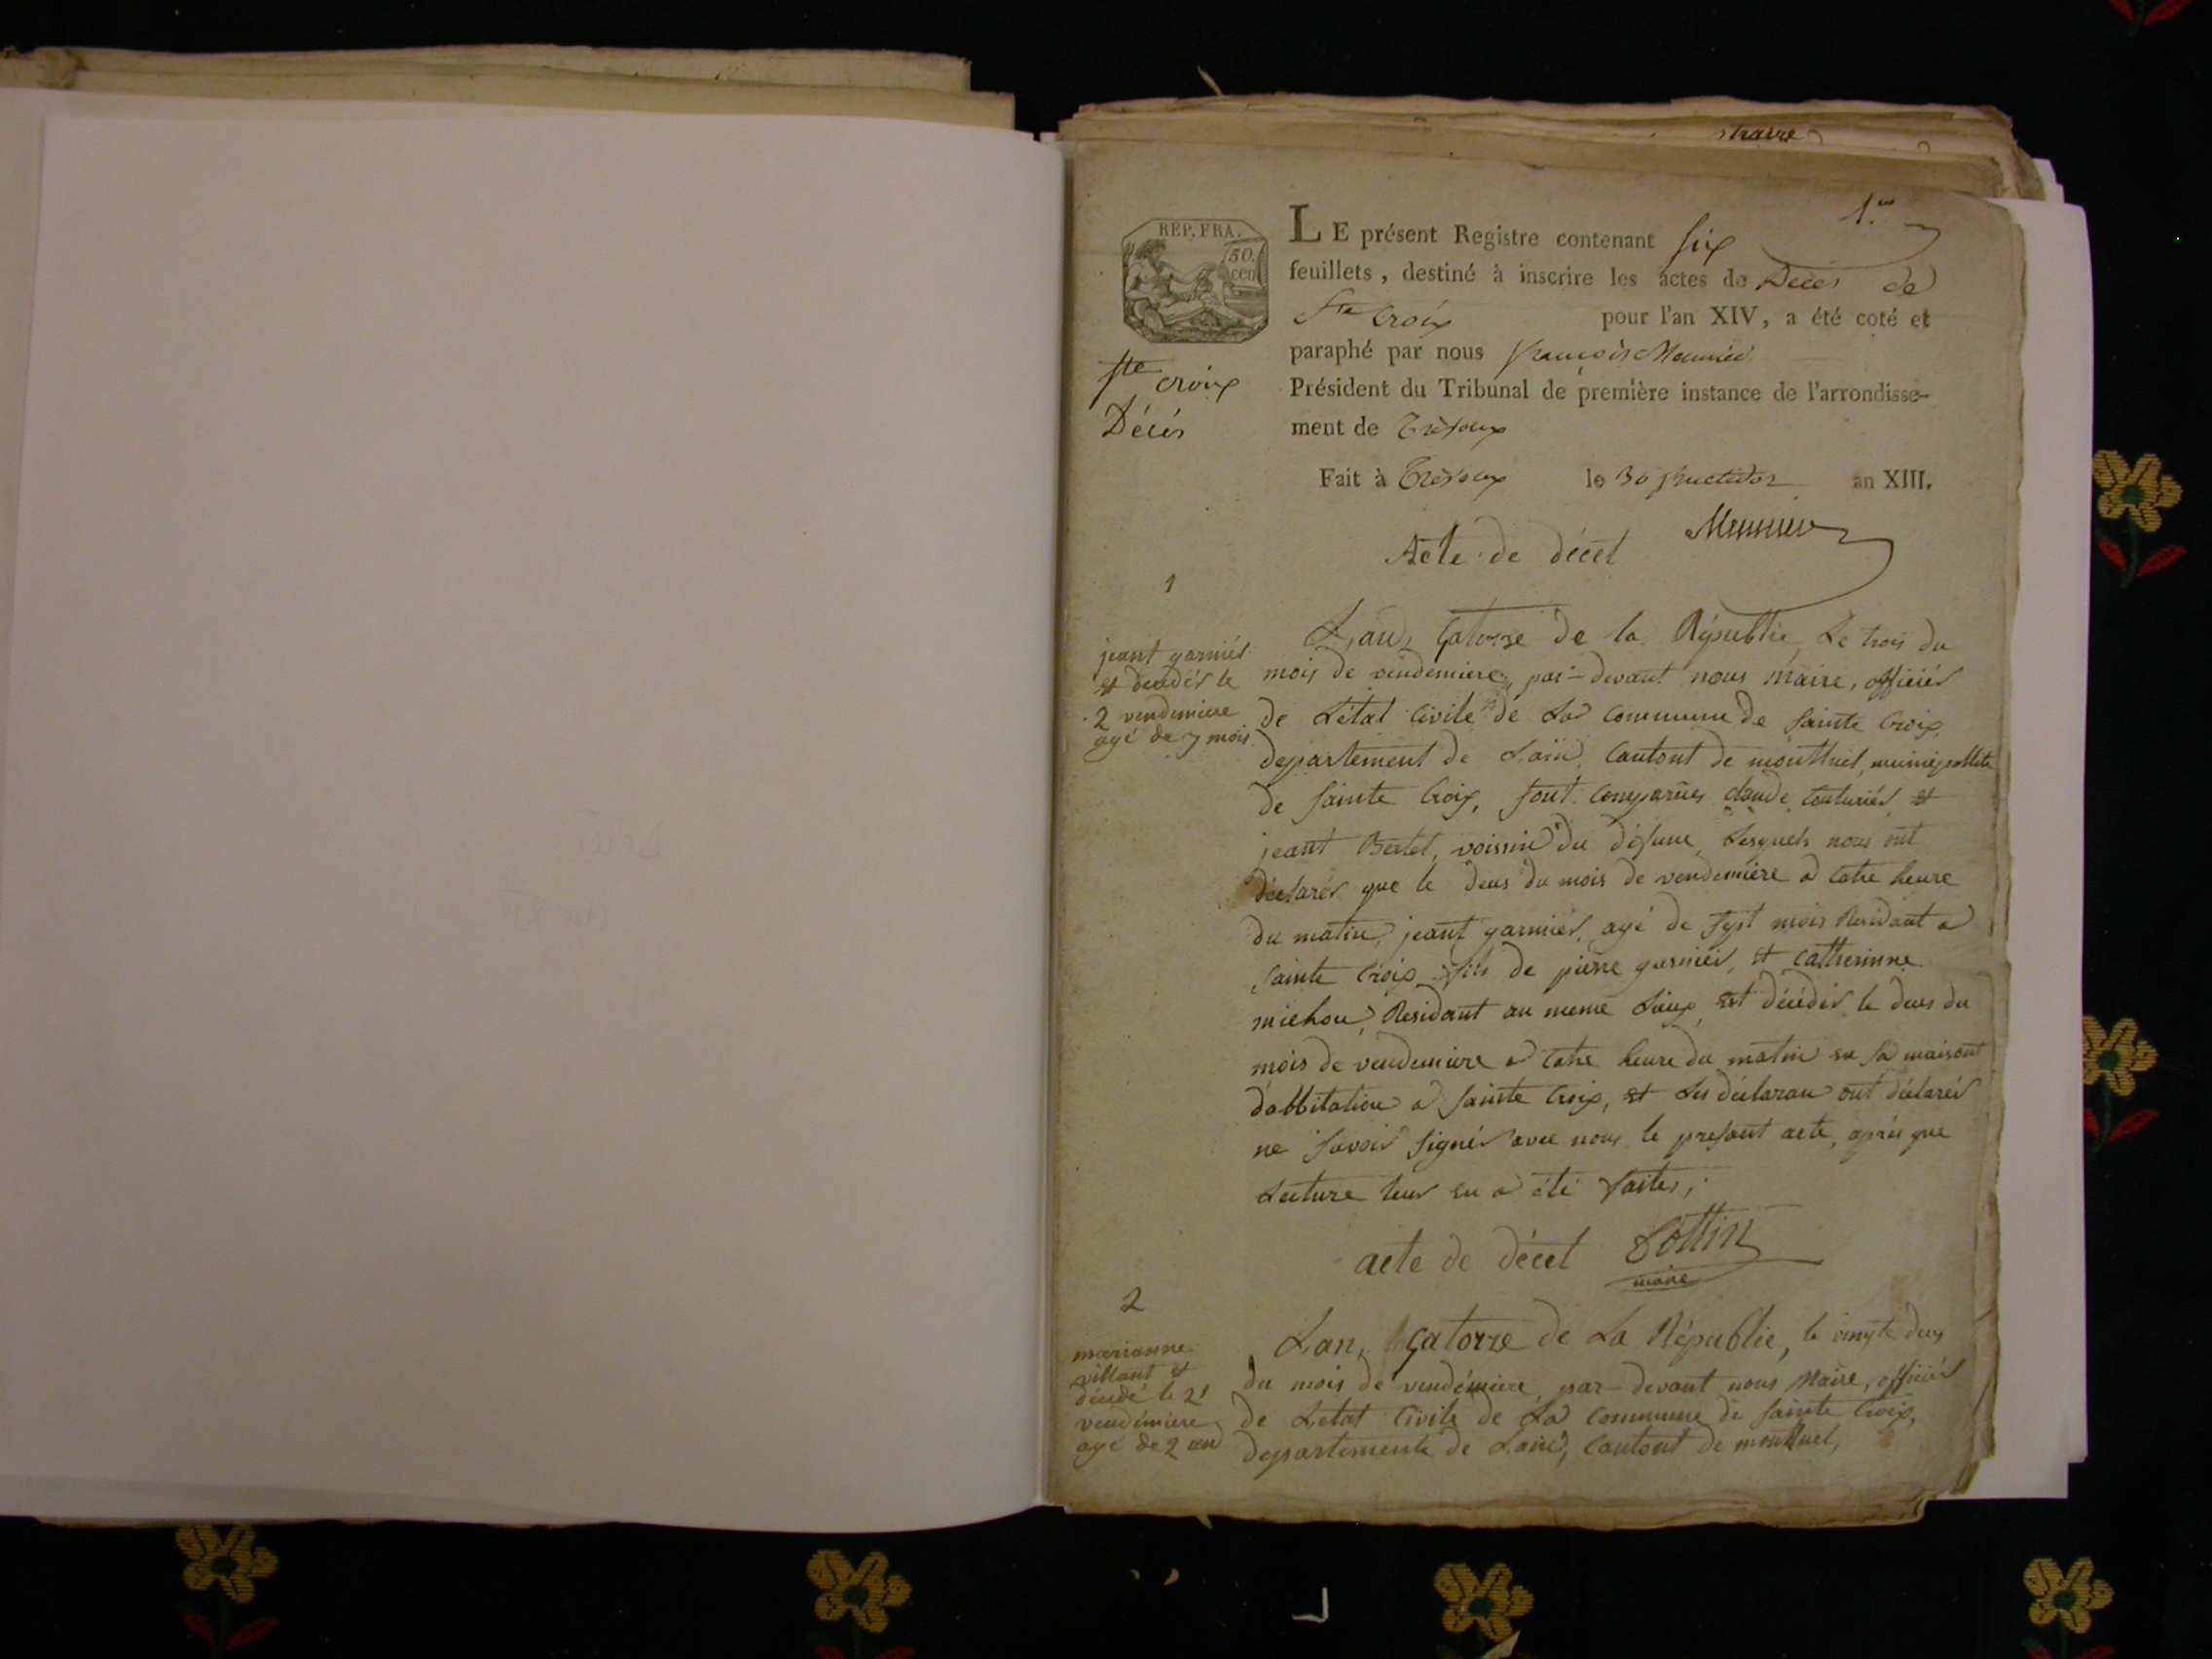 straire
1.er
RÉP. FRA.
50.
cen
LE présent Registre contenant six
feuillets, destiné à inscrire les actes de Décès de
Ste Croix pour l'an XIV, a été coté et
paraphé par nous françois Meunier
Président du Tribunal de première instance de l'arrondisse-
ment de Trévoux
Fait à Trévoux le 30 fructidor an XIII.
Ste croix
Décès
Meunier
Acte de décet
1
jeant garniér
et decedér le
2 vendemiere
agé de 7 mois
L,an, Catorze de la Républic, Le trois du
mois de vendemiere, par-devant nous maire, officiér
de L'état Civile de La commune de Sainte Croix,
departement de L'ain, Cantont de montluel, municipallite
de Sainte Croix, sont comparües claude couturiér et
jeant Bertet, voissin du défunc, Lesquels nous ont
déclarér que le deus du mois de vendemiere a catre heure
du matin, jeant garniér, agé de sept mois Residant a
Sainte Croix, fils de pierre garniér, et Catherinne
michou, Residant au meme Lieux, est décédér le deus du
mois de vendemiere a catre heure du matin en sa maisont
d'abbitation a Sainte Croix, et Les déclaran ont déclarér
ne savoir signér avec nous le presant acte, aprés que
Lecture leur en a été faites,
acte de décet Cottin
maire
2
marianne
villant et
décédé le 21
vendémiere
agé de 2 an
Lan, Catorze de La Républic, le vingte deus
du mois de vendémiere, par-devant nous Maire, officiér
de L'etat Civile de La commune de Sainte Croix,
departemente de L'ain, Cantont de montluel,